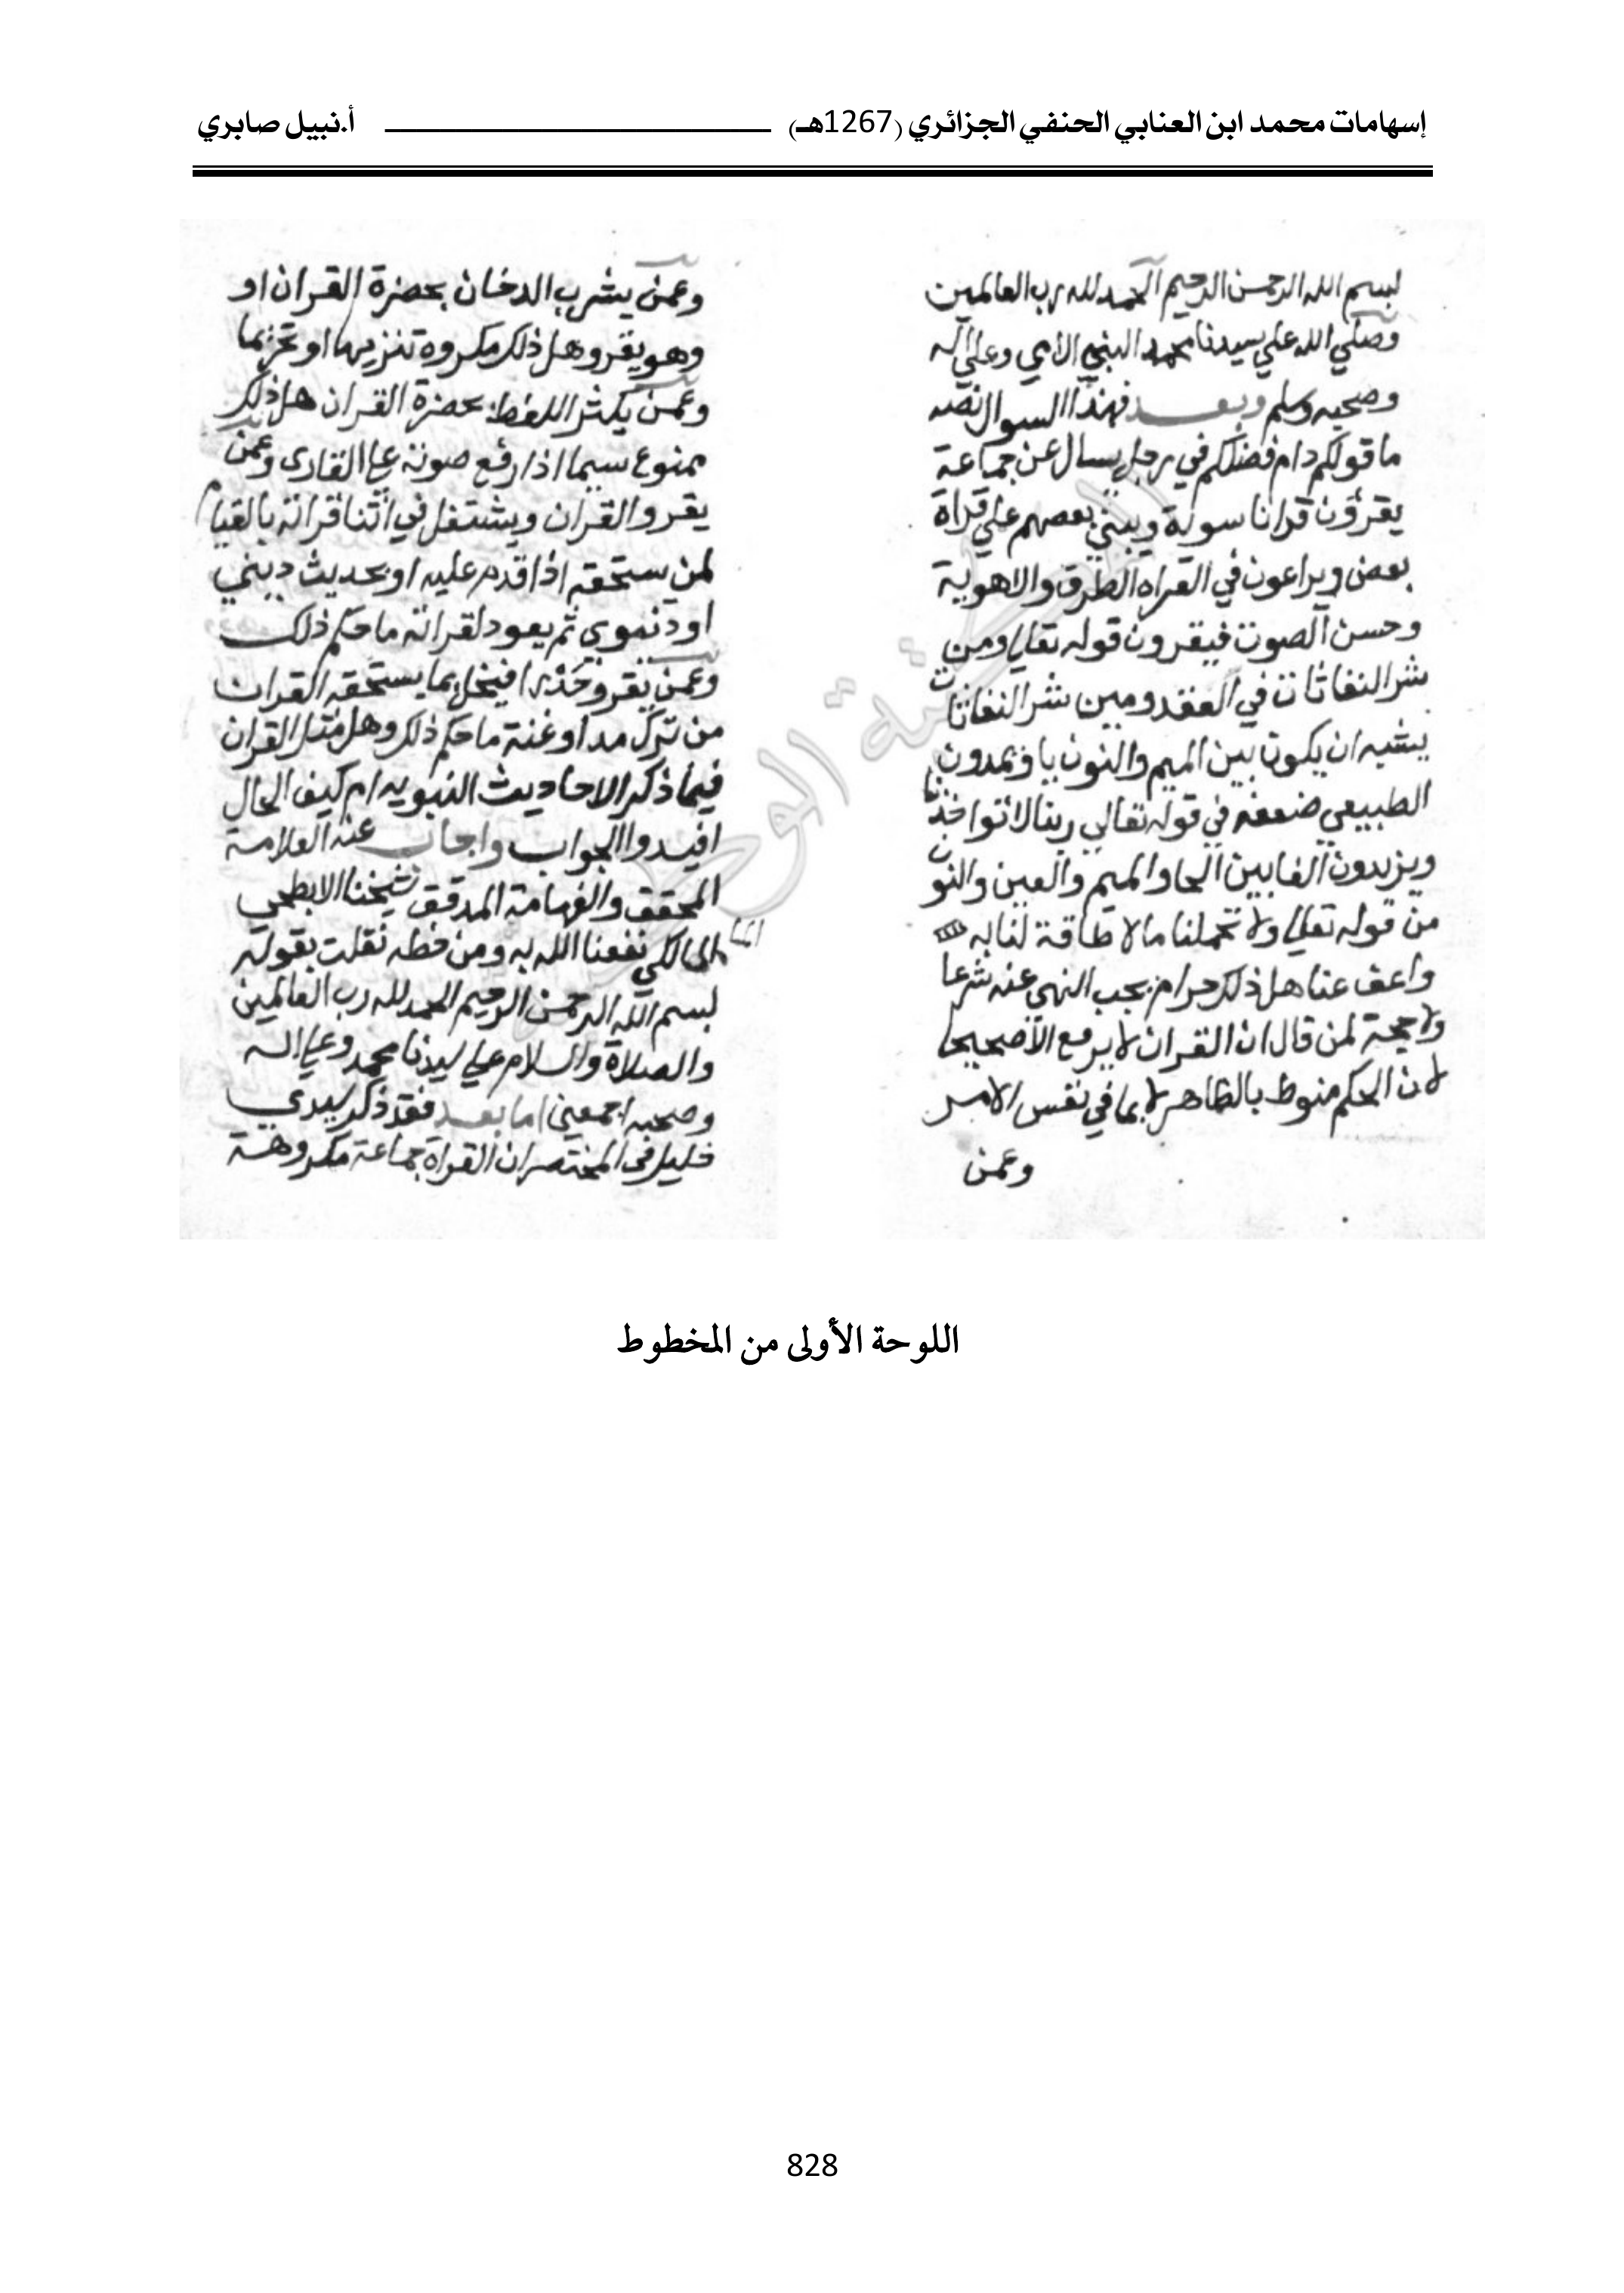 إسهامات محمد ابن العنابي الحنفي الجزائري (1267هـ) أ.نبيل صابري
بسم الله الرحمن الرحيم الحمد لله رب العالمين
وصلي الله علي سيدنا محمد النبي الامي وعلي اله
وصحبه وسلم وبعد فهذا السوال نصه
ما قولكم دام فضلكم في رجل يسال عن جماعة
يقرؤن قرانا سوية ويبني بعضهم علي قراة
بعض ويراعون في القراه الطرق والاهوية
وحسن الصوت فيقرون قوله تعالي ومن
شر النفاثات في العقد ومين شر النفاثات
يشبه ان يكون بين الميم والنون يا ويمدون
الطبيعي ضعفه في قوله تعالي ربنا لا تواخذنا
ويزيدون الفا بين الحا والميم والعين والنون
من قوله تعالي ولا تحملنا ما لا طاقة لنا به
واعف عنا هل ذلك حرام يجب النهي عنه شرعا
ولا حجة لمن قال ان القران لا يرفع الا صحيحا
لان الحكم منوط بالظاهر لا بما في نفس الامر
وعمن
وعمن يشرب الدخان بحضرة القران او
وهو يقرو هل ذلك مكروه تنزيها او تحريما
وعمن يكثر اللغط بحضرة القران هل ذلك
ممنوع سيما اذا رفع صوته علي القارى وعمن
يقرو القران ويشتغل في اثنا قراته بالقيام
لمن ستحقه اذا قدم عليه او بحديث ديني
او دنيوي ثم يعود لقراته ما حكم ذلك
وعمن يقرو حدرا فيخل بما يستحقه القران
من ترك مد او غنة ما حكم ذلك وهل مثل القران
فيما ذكر الاحاديث النبويه ام كيف الحال
افيدوا الجواب واجاب عنه العلامة
المحقق والفهامة المدقق شيخنا الابطحي
المالكي نفعنا الله به ومن خطه نقلت بقوله
بسم الله الرحمن الرحيم الحمد لله رب العالمين
والصلاة والسلام علي سيدنا محمد وعلي اله
وصحبه اجمعين اما بعد فقد ذكر سيدي
خليل في المختصر ان القراة جماعة مكروهة
اللوحة الأولى من المخطوط
828